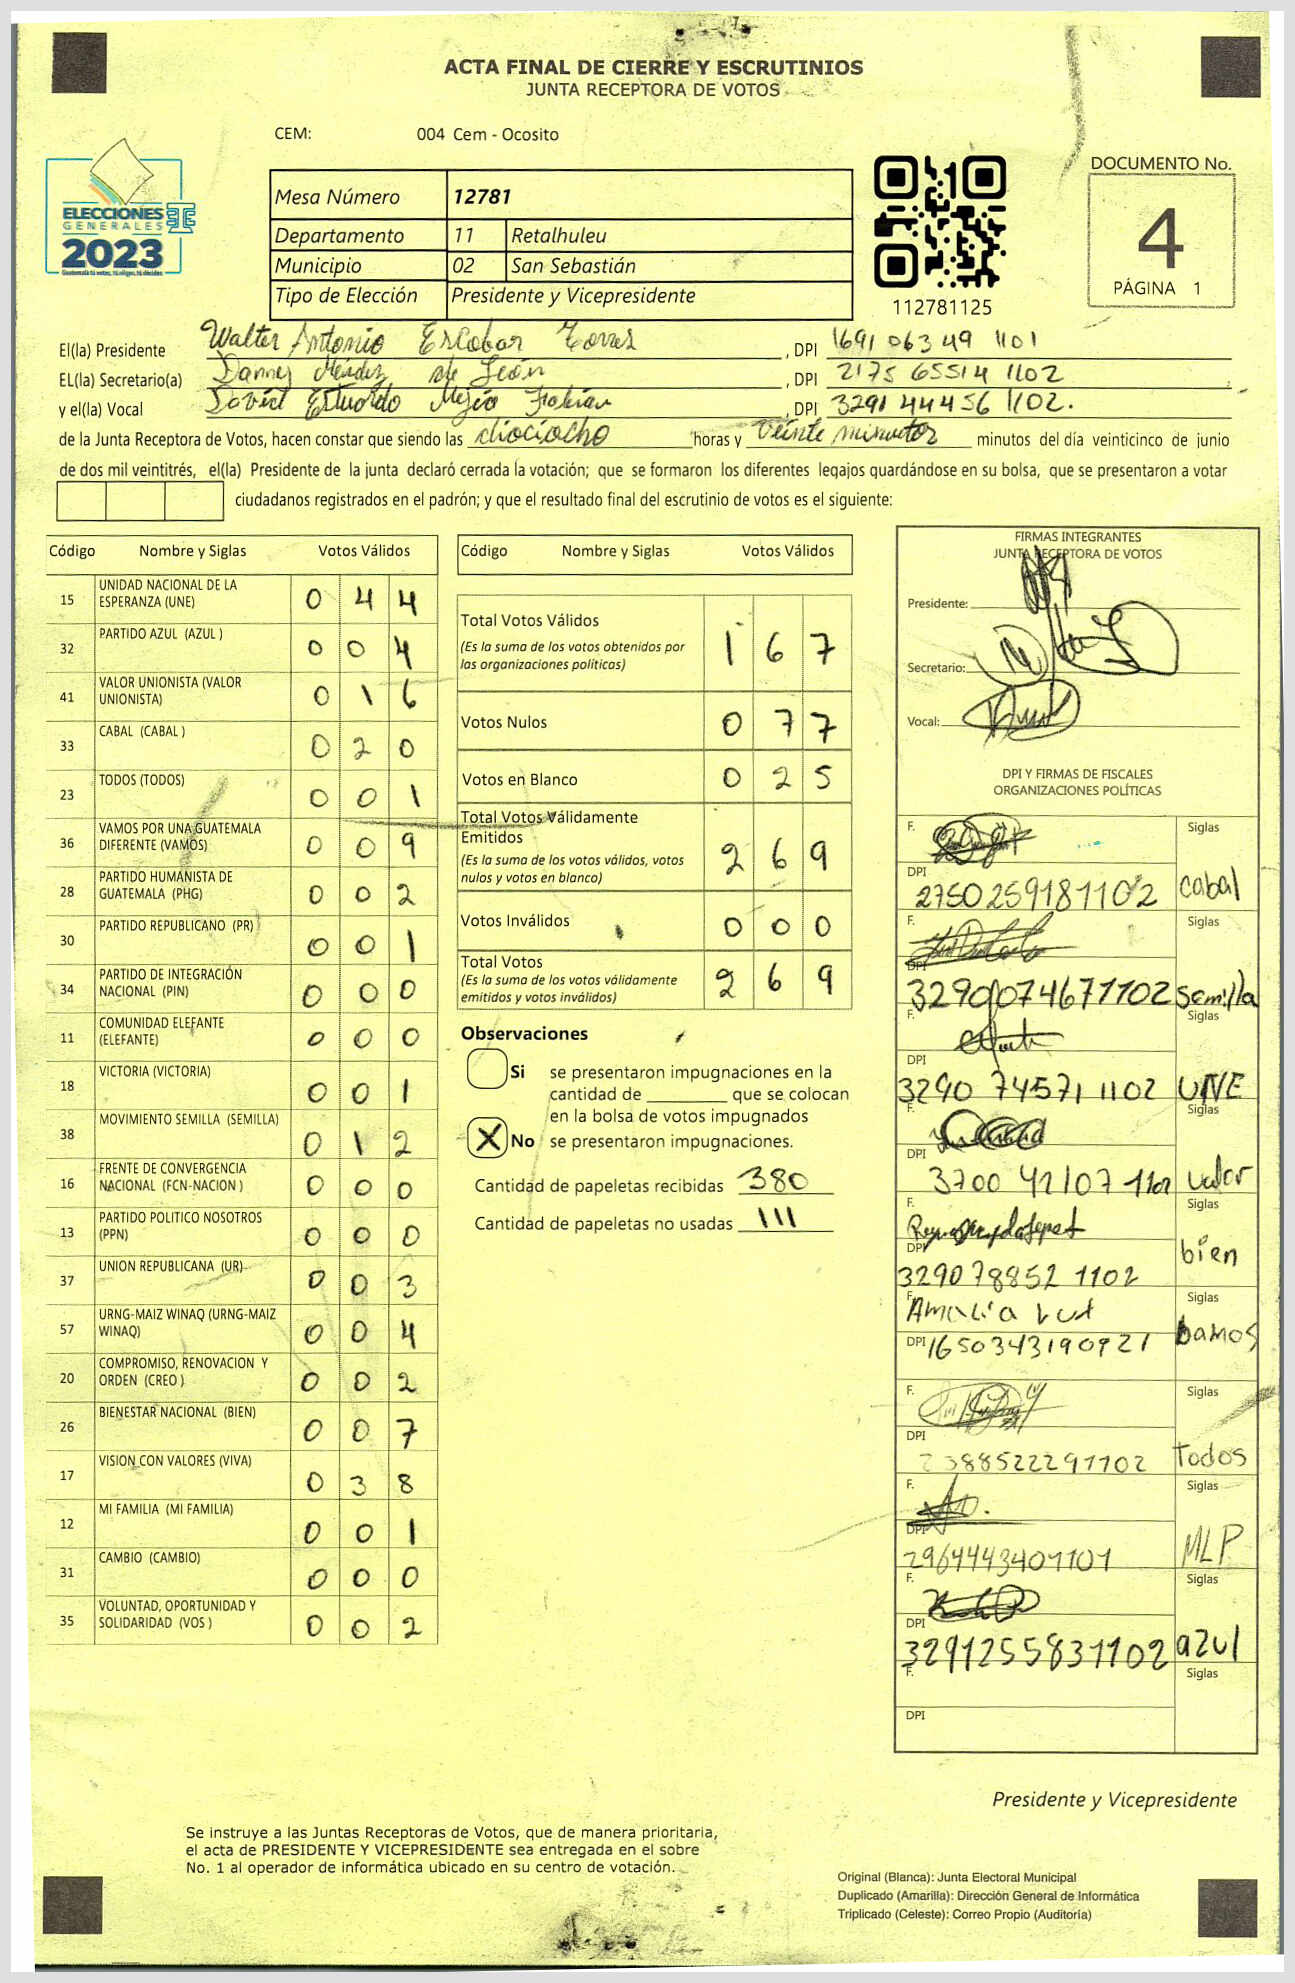 ACTA FINAL DE CIERRE Y ESCRUTINIOS
JUNTA RECEPTORA DE VOTOS
CEM: 004 Cem - Ocosito
ELECCIONES
GENERALES
2023
Guatemala tú votas, tú eliges, tú decides
Mesa Número 12781
Departamento 11 Retalhuleu
Municipio 02 San Sebastián
Tipo de Elección Presidente y Vicepresidente
112781125
DOCUMENTO No.
4
PÁGINA 1
El(la) Presidente Walter Antonio Escobar Torres , DPI 1691 06349 1101
EL(la) Secretario(a) Danny Méndez de León , DPI 2175 65514 1102
y el(la) Vocal David Estuardo Mejía Fabián , DPI 3291 44456 1102.
de la Junta Receptora de Votos, hacen constar que siendo las dieciocho horas y veinte minutos minutos del día veinticinco de junio
de dos mil veintitrés, el(la) Presidente de la junta declaró cerrada la votación; que se formaron los diferentes legajos guardándose en su bolsa, que se presentaron a votar
ciudadanos registrados en el padrón; y que el resultado final del escrutinio de votos es el siguiente:
Código Nombre y Siglas Votos Válidos
15 UNIDAD NACIONAL DE LA ESPERANZA (UNE) 0 4 4
32 PARTIDO AZUL (AZUL ) 0 0 4
41 VALOR UNIONISTA (VALOR UNIONISTA) 0 1 6
33 CABAL (CABAL ) 0 2 0
23 TODOS (TODOS) 0 0 1
36 VAMOS POR UNA GUATEMALA DIFERENTE (VAMOS) 0 0 9
28 PARTIDO HUMANISTA DE GUATEMALA (PHG) 0 0 2
30 PARTIDO REPUBLICANO (PR) 0 0 1
34 PARTIDO DE INTEGRACIÓN NACIONAL (PIN) 0 0 0
11 COMUNIDAD ELEFANTE (ELEFANTE) 0 0 0
18 VICTORIA (VICTORIA) 0 0 1
38 MOVIMIENTO SEMILLA (SEMILLA) 0 1 2
16 FRENTE DE CONVERGENCIA NACIONAL (FCN-NACION ) 0 0 0
13 PARTIDO POLITICO NOSOTROS (PPN) 0 0 0
37 UNION REPUBLICANA (UR) 0 0 3
57 URNG-MAIZ WINAQ (URNG-MAIZ WINAQ) 0 0 4
20 COMPROMISO, RENOVACION Y ORDEN (CREO ) 0 0 2
26 BIENESTAR NACIONAL (BIEN) 0 0 7
17 VISION CON VALORES (VIVA) 0 3 8
12 MI FAMILIA (MI FAMILIA) 0 0 1
31 CAMBIO (CAMBIO) 0 0 0
35 VOLUNTAD, OPORTUNIDAD Y SOLIDARIDAD (VOS ) 0 0 2
Código Nombre y Siglas Votos Válidos
Total Votos Válidos 1 6 7
(Es la suma de los votos obtenidos por
las organizaciones políticas)
Votos Nulos 0 7 7
Votos en Blanco 0 2 5
Total Votos Válidamente
Emitidos 2 6 9
(Es la suma de los votos válidos, votos
nulos y votos en blanco)
Votos Inválidos 0 0 0
Total Votos 2 6 9
(Es la suma de los votos válidamente
emitidos y votos inválidos)
Observaciones
Si se presentaron impugnaciones en la
cantidad de ________ que se colocan
en la bolsa de votos impugnados
X No se presentaron impugnaciones.
Cantidad de papeletas recibidas 380
Cantidad de papeletas no usadas 111
FIRMAS INTEGRANTES
JUNTA RECEPTORA DE VOTOS
Presidente:
Secretario:
Vocal:
DPI Y FIRMAS DE FISCALES
ORGANIZACIONES POLÍTICAS
F. Siglas
DPI 2750259181102 cabal
F. Siglas
DPI 3290074671102 semilla
F. Siglas
DPI 3290 74571 1102 UNE
F. Siglas
DPI 3700 42107 1101 valor
F. Siglas
DPI 329078852 1102 bien
F. Amalia Siglas
DPI 1650343190921 bamos
F. Siglas
DPI 2388522291102 Todos
F. Siglas
DPI 2964443401101 MLP
F. Siglas
DPI 3291255831102 azul
F. Siglas
DPI
Presidente y Vicepresidente
Se instruye a las Juntas Receptoras de Votos, que de manera prioritaria,
el acta de PRESIDENTE Y VICEPRESIDENTE sea entregada en el sobre
No. 1 al operador de informática ubicado en su centro de votación.
Original (Blanca): Junta Electoral Municipal
Duplicado (Amarilla): Dirección General de Informática
Triplicado (Celeste): Correo Propio (Auditoría)